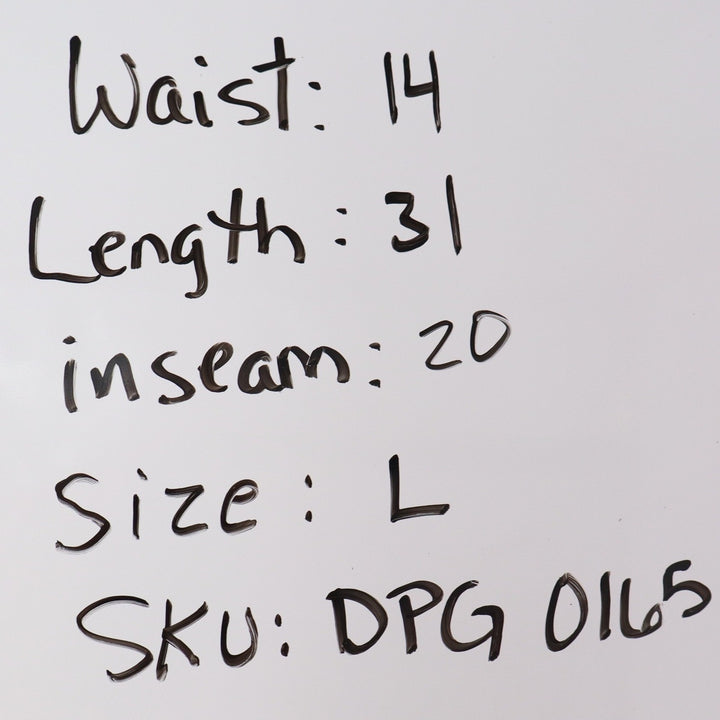 Waist: 14
Length: 31
inseam: 20
Size: L
SKU: DPG 0165